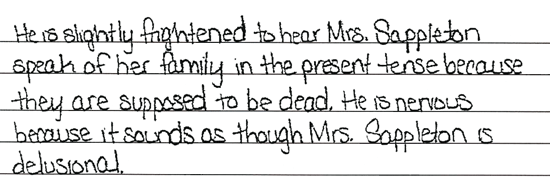 He is slightly frightened to hear Mrs. Sappleton
speak of her family in the present tense because
they are supposed to be dead. He is nervous
because it sounds as though Mrs. Sappleton is
delusional.